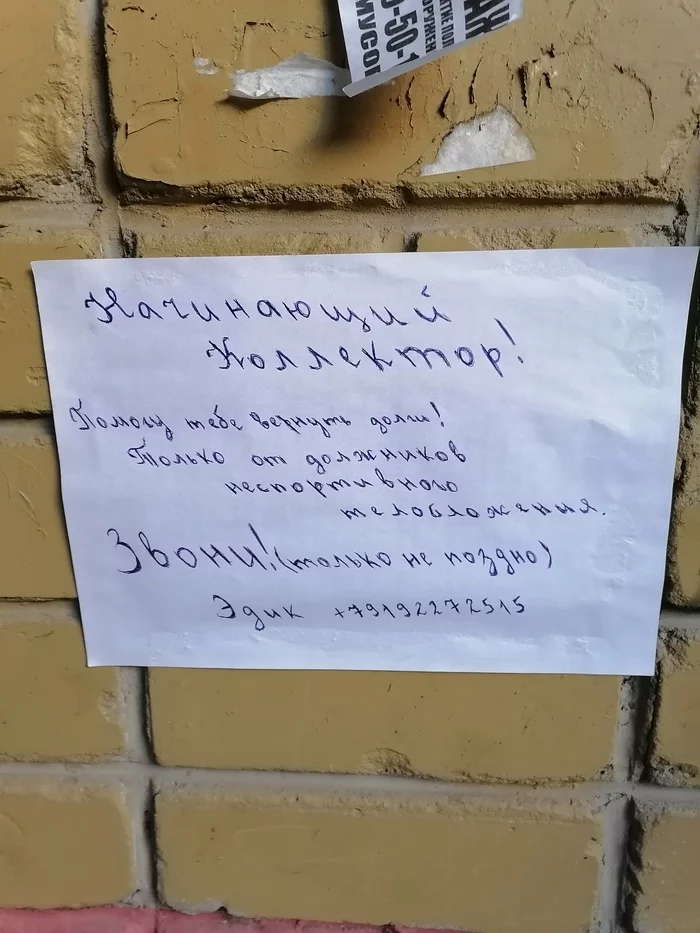 АЯ
5-50-1
МУСОР
Начинающий
Коллектор!
Помогу тебе вернуть долги!
Только от должников
неспортивного
телобложения.
Звони! (только не поздно)
Эдик +79192272515